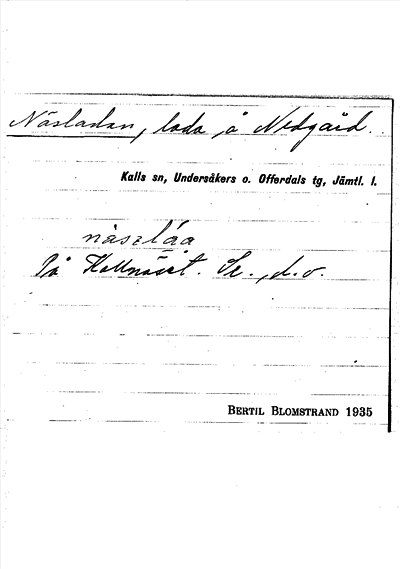 Näsladan, lada, å Nedgård.
Kalls sn, Undersåkers o. Offerdals tg, Jämtl. l.
På Kallnäset. Se, d.o.
BERTIL BLOMSTRAND 1935